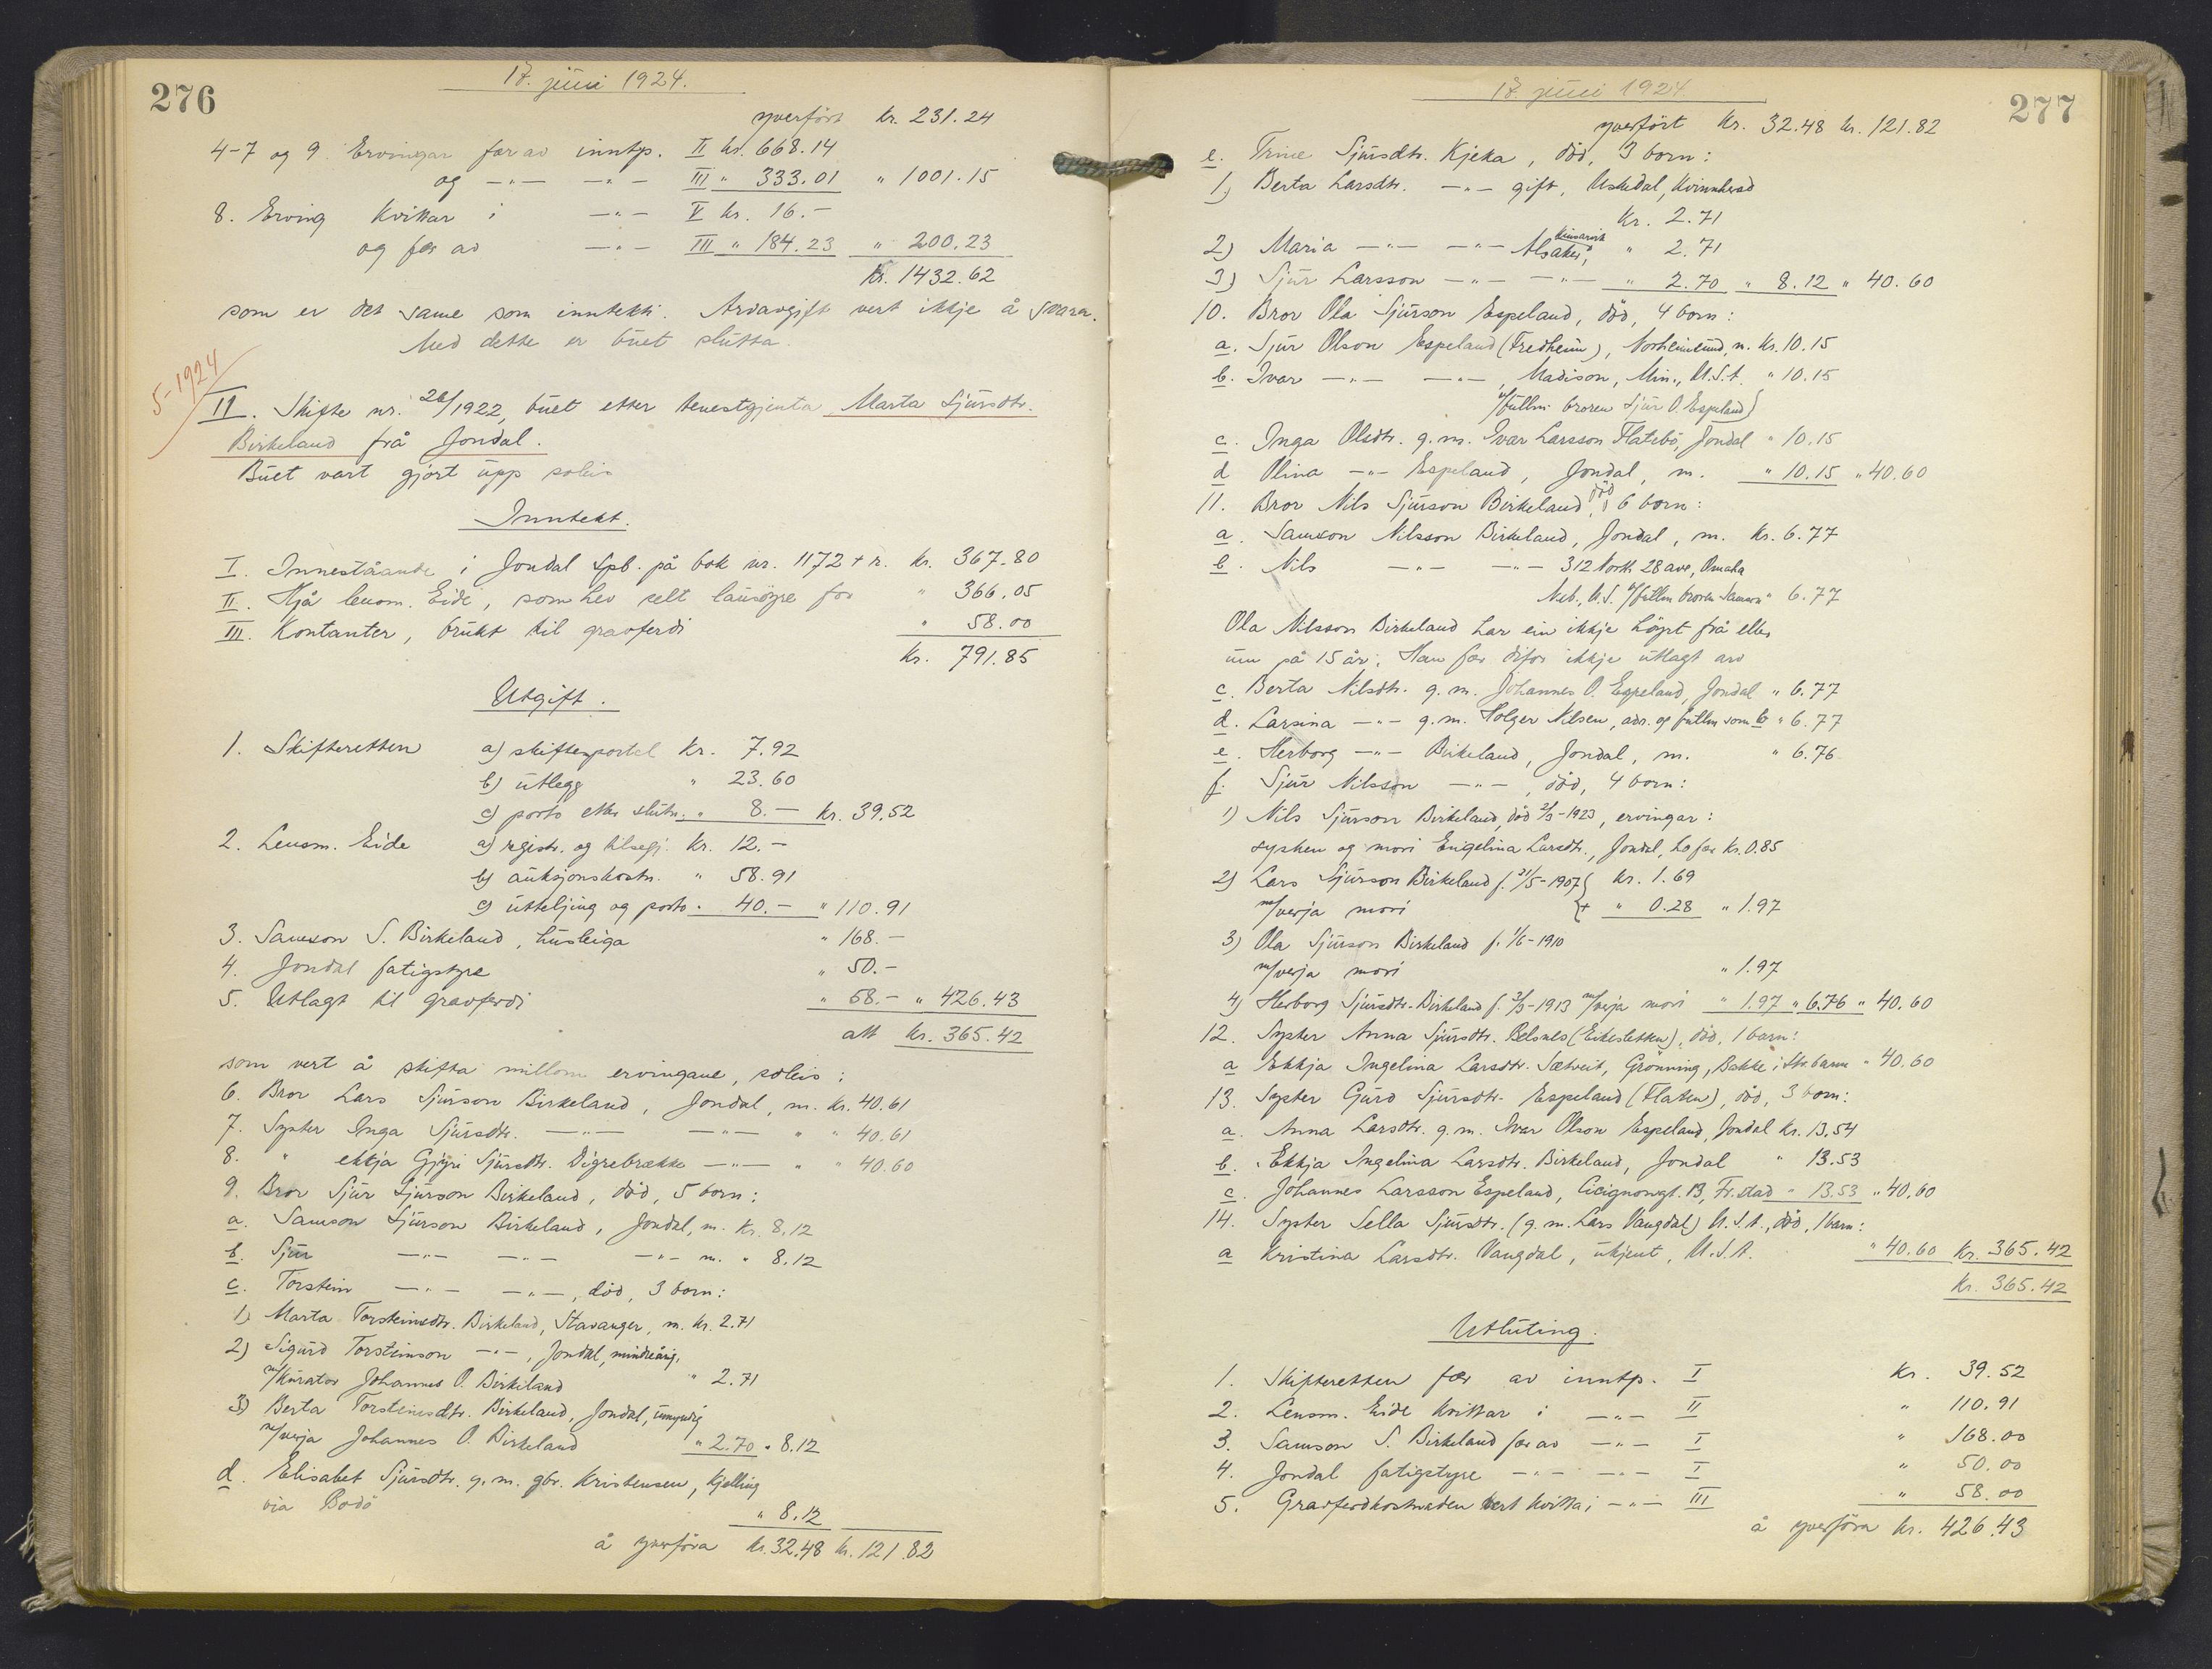 276
17. juni 1924.
yverfört kr. 231.24
4-7 og 9. Ervingar fær av inntp. II kr. 668.14
og —"— —"— III " 333.01 " 1001.15
8. Erving kvittar i —"— V kr. 16.-
og fær av —"— III " 184.23 " 200.23
kr. 1432.62
som er det same som inntekti. Arvavgift vert ikkje å svara.
Med dette er buet slutta.
5-1924
II. Skifte nr. 26/1922, buet etter tenestgjenta Marta Sjursdtr.
Birkeland frå Jondal.
Buet vart gjort upp soleis
Inntekt.
I. Inneståande i Jondal Spb. på bok nr. 1172 + r. kr. 367.80
II. Hjå lensm. Eide, som hev selt lausöyre for " 366.05
III. Kontanter, brukt til gravferdi " 58.00
kr. 791.85
Utgift.
1. Skifteretten a) skiftesportel kr. 7.92
b) utlegg " 23.60
c) porto etter slutn. " 8.— kr. 39.52
2. Lensm. Eide a) registr. og tilsegj. kr. 12.-
b) auksjonskostn. " 58.91
c) utteljing og porto " 40.- " 110.91
3. Samson S. Birkeland, husleiga " 168.-
4. Jondal fatigstyre " 50.-
5. Utlagt til gravferdi " 58.- " 426.43
att kr. 365.42
som vert å skifta millom ervingane, soleis:
6. Bror Lars Sjurson Birkeland, Jondal, m. kr. 40.61
7. Syster Inga Sjursdtr. —"— —"— " " 40.61
8. " ekkja Gjyri Sjursdtr. Digrebrække —"— " " 40.60
9. Bror Sjur Sjurson Birkeland, död, 5 born:
a. Samson Sjurson Birkeland, Jondal, m. kr. 8.12
b. Sjur —"— —"— —"— m. " 8.12
c. Torstein —"— —"—, död, 3 born:
1) Marta Torsteinsdtr. Birkeland, Stavanger, m. kr. 2.71
2) Sigurd Torsteinson —"—, Jondal, mindreårig,
m/kurator Johannes O. Birkeland " 2.71
3) Berta Torsteinsdtr. Birkeland, Jondal, umyndig
m/verja Johannes O. Birkeland " 2.70 " 8.12
d. Elisabet Sjursdtr. g. m. gbr. Kristensen, Kjelling
via Bodö " 8.12
å yverföra kr. 32.48 kr. 121.82
277
17. juni 1924
yverfört kr. 32.48 kr. 121.82
e. Trine Sjursdtr. Kjeka, död, 3 born:
1) Berta Larsdtr. —"— gift, Uskedal, Kvinnherad
kr. 2.71
2) Maria —"— —"— Alsaker, Kinsarvik " 2.71
3) Sjur Larsson —"— —"— " 2.70 " 8.12 " 40.60
10. Bror Ola Sjurson Espeland, död, 4 born:
a. Sjur Olson Espeland (Fredheim), Norheimsund, m. kr. 10.15
b. Ivar —"— —"—, Madison, Min., U.S.A. " 10.15
v/fullm. broren Sjur O. Espeland
c. Inga Olsdtr. g. m. Ivar Larsson Flatebö, Jondal " 10.15
d. Olina —"— Espeland, Jondal, m. " 10.15 " 40.60
11. Bror Nils Sjurson Birkeland, död, 6 born:
a. Samson Nilsson Birkeland, Jondal, m. kr. 6.77
b. Nils —"— —"— 312 North 28 ave, Omaha
Neb., U.S. v/fullm. broren Samson " 6.77
Ola Nilsson Birkeland har ein ikkje höyrt frå eller
um på 15 år. Han fær difor ikkje utlagt arv
c. Berta Nilsdtr. g. m. Johannes O. Espeland, Jondal " 6.77
d. Larsina —"— g. m. Holger Nilsen, adr. og fullm. som b " 6.77
e. Herborg —"— Birkeland, Jondal, m. " 6.76
f. Sjur Nilsson —"—, död, 4 born:
1) Nils Sjurson Birkeland, död 2/3-1923, ervingar:
sysken og mori Engelina Larsdtr., Jondal, ho fær kr. 0.85
2) Lars Sjurson Birkeland f. 21/5-1907 { kr. 1.69
m/verja mori {+ " 0.28 " 1.97
3) Ola Sjurson Birkeland f. 1/6-1910
m/verja mori " 1.97
4) Herborg Sjursdtr. Birkeland f. 3/3-1913 m/verja mori " 1.97 " 6.76 " 40.60
12. Syster Anna Sjursdtr. Belsnes (Eikesletten), död, 1 barn:
a Ekkja Ingelina Larsdtr. Sætveit, Grönning, Bakke i Str.barm " 40.60
13. Syster Gurd Sjursdtr. Espeland (Flaten), död, 3 born:
a. Anna Larsdtr. g. m. Ivar Olson Espeland, Jondal kr. 13.54
b. Ekkja Ingelina Larsdtr. Birkeland, Jondal " 13.53
c. Johannes Larsson Espeland, Cicignongt. 13, Fr.stad " 13.53 " 40.60
14. Syster Sella Sjursdtr. (g. m. Lars Vangdal) U.S.A., död, 1 barn:
a Kristina Larsdtr. Vangdal, ukjent, U.S.A. " 40.60 kr. 365.42
kr. 365.42
Utluting.
1. Skifteretten fær av inntp. I kr. 39.52
2. Lensm. Eide kvittar i —"— II " 110.91
3. Samson S. Birkeland fær av —"— I " 168.00
4. Jondal fatigstyre —"— —"— I " 50.00
5. Gravferdkostnaden vert kvitta i —"— III " 58.00
å yverföra kr. 426.43